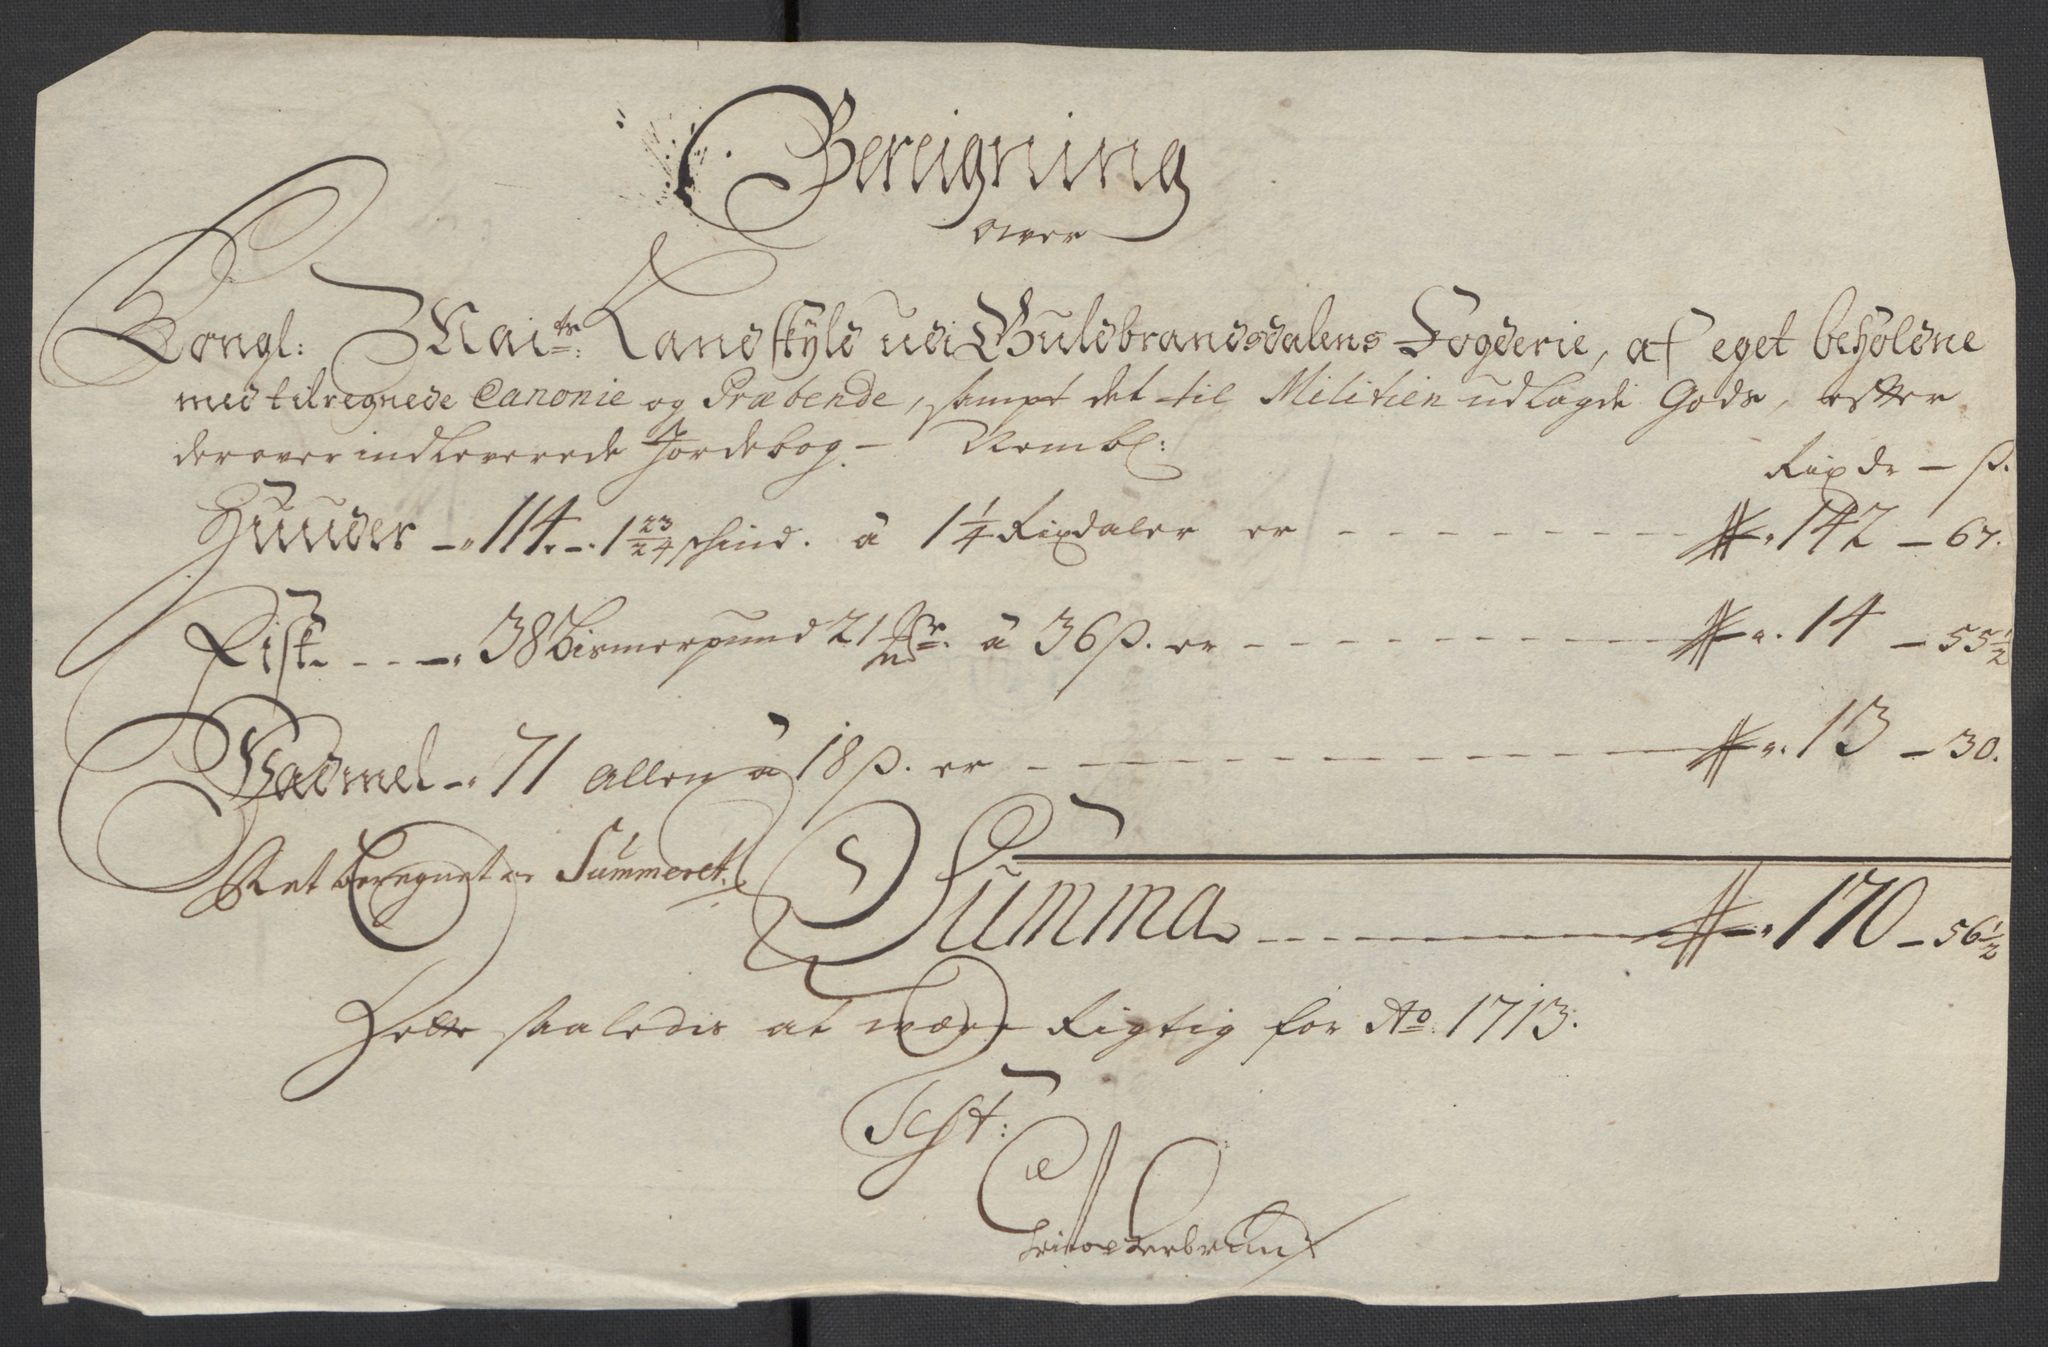 Bereigning
over
Kongl: Maits: Landskyld udi Guldbrandsdalens Fogderie, af eget beholdne
med tilregnede Canonie og Præbende, sampt det til Militien udlagde Gods, efter
derover indleverede Jordebog. Nembl:
Rixdr - ß.
Huuder - 114. - 1 23/24 schind. â 1 1/4 Rixdaler er - 142 - 67.
Fisk - 38 Bismerpund 21 â 36 ß. er - 14 - 55 1/2
Wadmel - 71 Allen â 18 ß. er - 13 - 30.
Ret beregnet oc Summeret.
Summa - 170 - 56 1/2
Dette saaledis at være Rigtig for Ao. 1713.
Test: